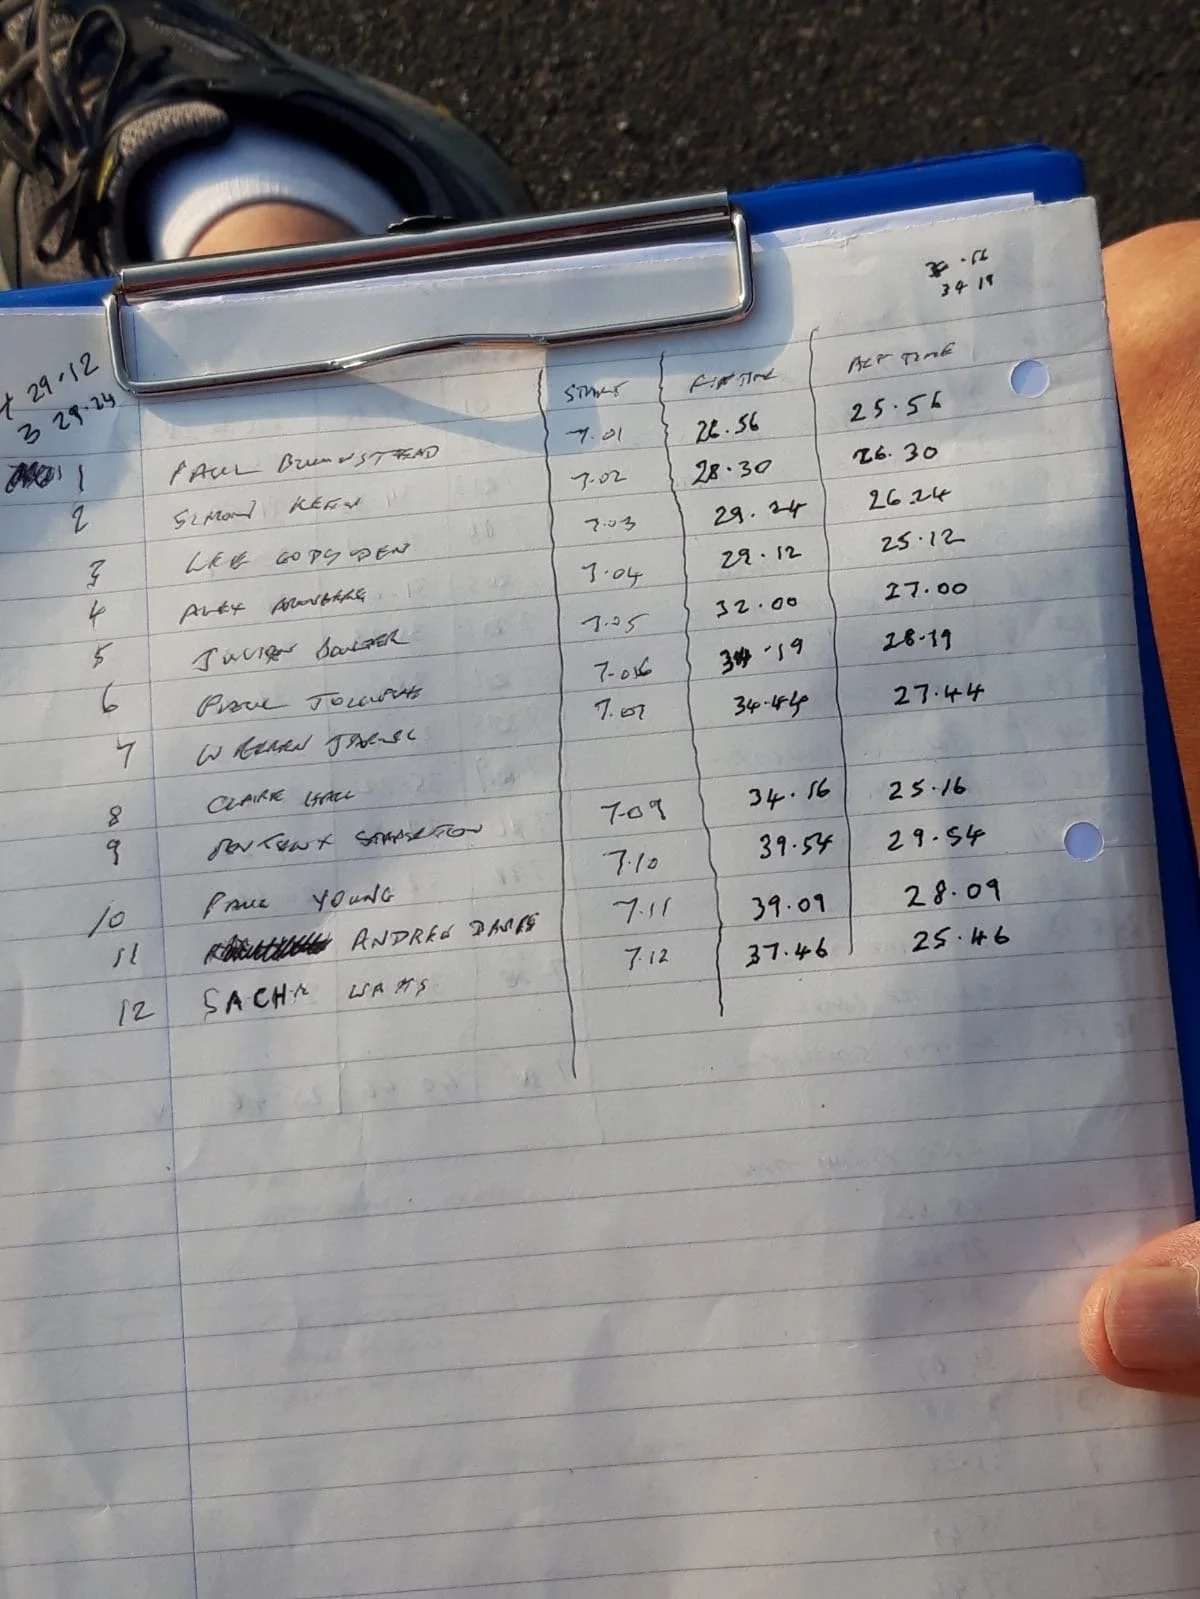 34 19
29.12
3 29.24
START FIN TIME ACT TIME
1 PAUL BUMNSTEAD 7.01 26.56 25.56
2 SIMON KEEN 7.02 28.30 26.30
3 LEE GODSDEN 7.03 29.24 26.24
4 ALEX 7.04 29.12 25.12
5 JULIAN 7.05 32.00 27.00
6 PAUL 7.06 34.19 28.19
7 WARREN 7.07 34.44 27.44
8 CLAIRE HALL
9 STAPLETON 7.09 34.16 25.16
10 PAUL YOUNG 7.10 39.54 29.54
11 ANDREW 7.11 39.09 28.09
12 SACHA WATTS 7.12 37.46 25.46